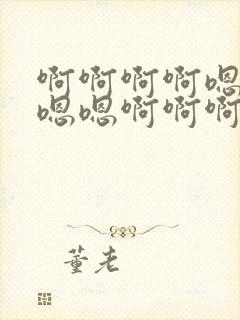 啊啊啊啊嗯
嗯嗯啊啊啊
董老